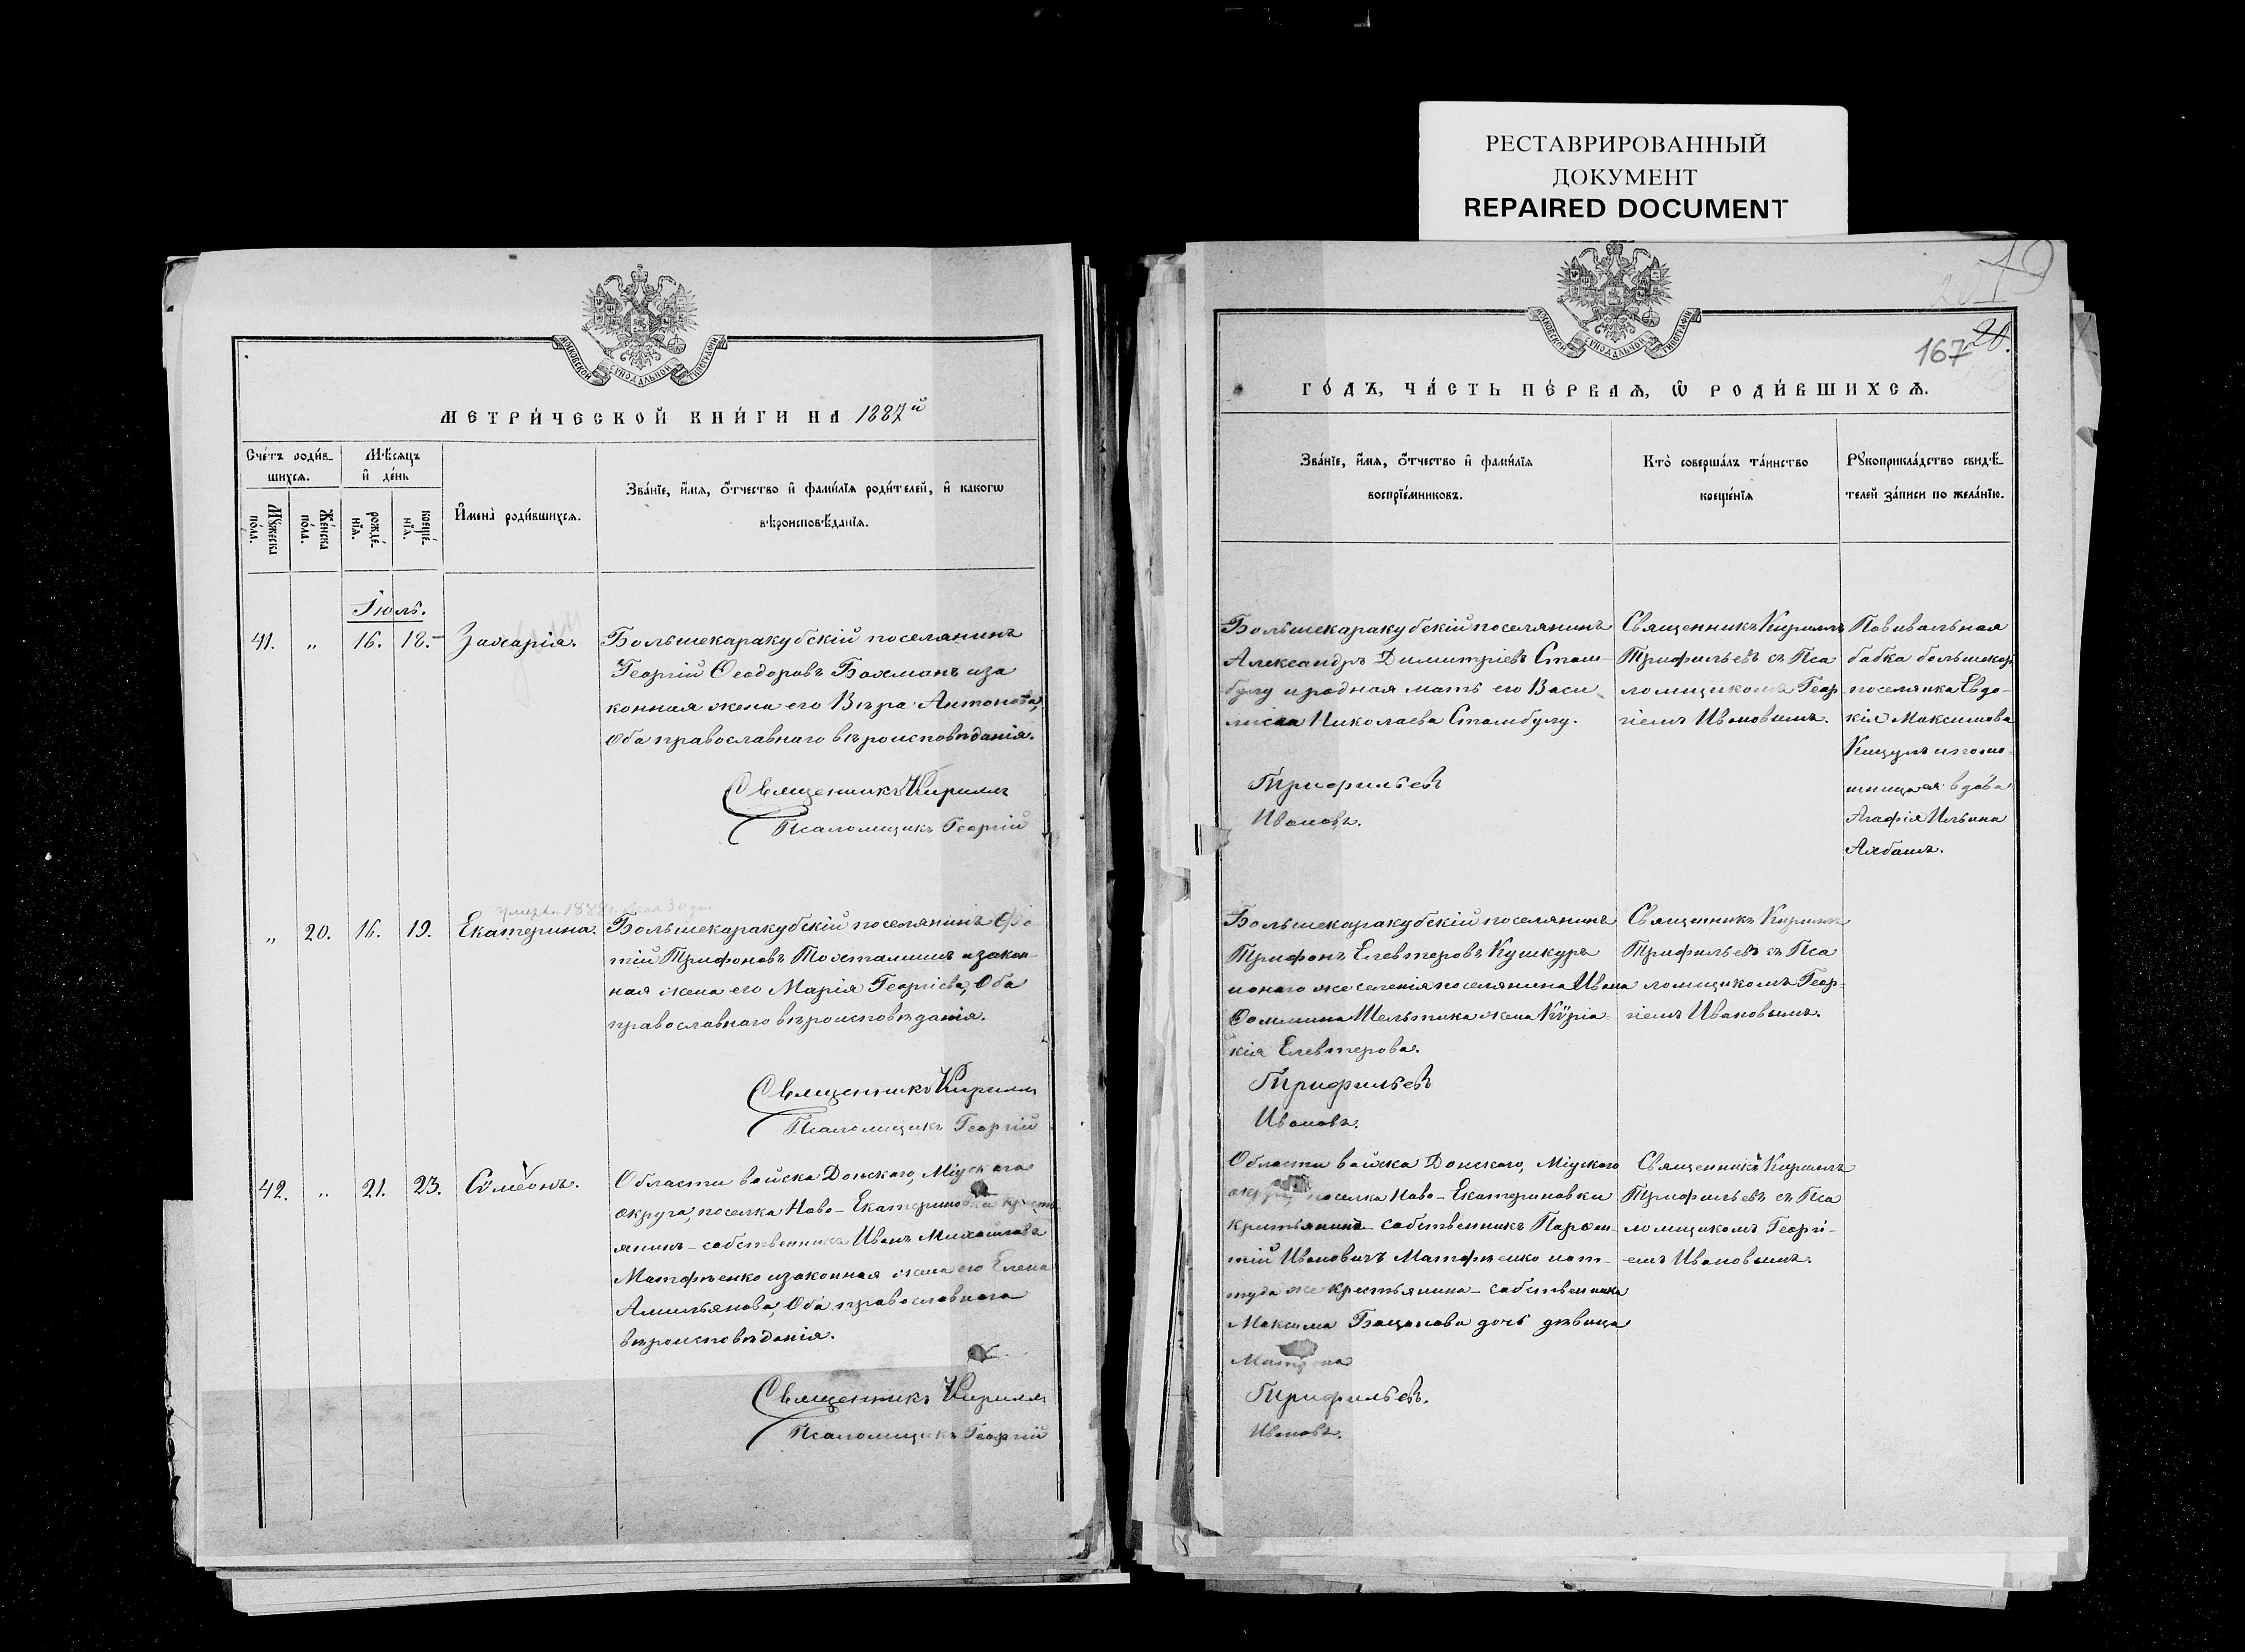 РЕСТАВРИРОВАННЫЙ
ДОКУМЕНТ
REPAIRED DOCUMENT
МОСКОВСКОЙ СѴНОДАЛЬНОЙ ТИПОГРАФІИ
МЕТРИ́ЧЕСКОЙ КНИ́ГИ НА 1887й
Сче́тъ роди́в-
шихсѧ.
Мѣ́сѧцъ
и҆ де́нь
Мꙋ́жеска
по́ла.
Же́нска
по́ла.
рожде́-
нїѧ.
креще́-
нїѧ.
И҆мена̀ роди́вшихсѧ.
Зва́нїе, и҆́мѧ, ѻ҆́тчество и҆ фами́лїѧ роди́телей, и҆ какогѡ
вѣроисповѣ́данїѧ.
Іюль.
41. „ 16. 18. Захарія.
Большекаракубскій поселянинъ
Георгій Ѳеодоровъ Бахманъ иза
конная жена его Вѣра Антонова,
Оба православнаго вѣроисповѣданія.
Священникъ Кириллъ
Псаломщикъ Георгій
умерла 1888 г. мая 30 дня
„ 20. 16. 19. Екатерина.
Большекаракубскій поселянинъ Фо-
тій Трифоновъ Тохтамышъ изакон-
ная жена его Марія Георгіева, Оба
православнаго вѣроисповѣданія.
Священникъ Кириллъ
Псаломщикъ Георгій
42. „ 21. 23. Сѵмеонъ.
Области войска Донскаго, Міускаго
округа, поселка Ново-Екатериновка кресть-
янинъ-собственникъ Иванъ Михайловъ
Матфѣенко изаконная жена его Елена
Амильянова, Оба православнаго
вѣроисповѣданія.
Священникъ Кириллъ
Псаломщикъ Георгій
19
20.
167
МОСКОВСКОЙ СѴНОДАЛЬНОЙ ТИПОГРАФІИ
ГО́ДЪ, ЧА́СТЬ ПЕ́РВАѦ, Ѡ҆ РОДИ́ВШИХСѦ.
Зва́нїе, и҆́мѧ, ѻ҆́тчество и҆ фами́лїѧ
воспрїе́мниковъ.
Кто̀ соверша́лъ та́инство
креще́нїѧ
Рꙋкоприкла́дство свидѣ́-
телей за́писи по жела́нїю.
Большекаракубскій поселянинъ
Александръ Димитріевъ Стам-
булу и родная мать его Васи-
лисса Николаева Стамбулу.
Трифильевъ
Ивановъ.
Священникъ Кириллъ
Трифильевъ съ Пса
ломщикомъ Геор-
гіемъ Ивановымъ.
Повивальная
бабка большекар
поселянка Евдо-
кія Максимова
Кацупъ ипомо-
щница ея вдова
Агафія Ильина
Ахбашъ.
Большекаракубскій поселянинъ
Трифонъ Елевтеровъ Кушкура
ионаго же селенія поселянина Ивана
Ѳомина Шельтика жена Кѵріа-
кія Елевтерова.
Трифильевъ
Ивановъ.
Священникъ Кириллъ
Трифильевъ съ Пса
ломщикомъ Геор-
гіемъ Ивановымъ.
Области войска Донскаго, Міускаго
округа, поселка Ново-Екатериновки
крестьянинъ-собственникъ Парѳен-
тій Ивановичъ Матфѣенко иот-
туда же крестьянина-собственника
Максима Бацанова дочь дѣвица
Матрона
Трифильевъ.
Ивановъ.
Священникъ Кириллъ
Трифильевъ съ Пса
ломщикомъ Георгі-
емъ Ивановымъ.